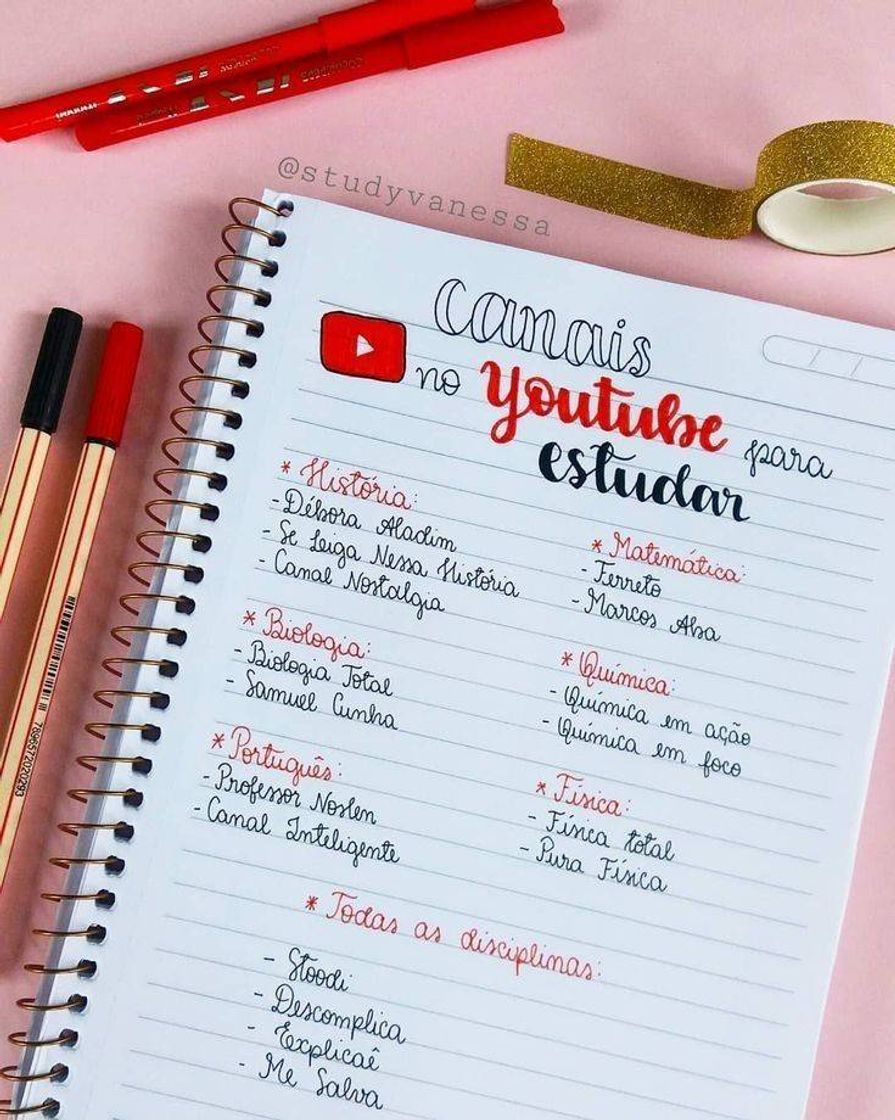 @studyvanessa
Canais
no Youtube para
estudar
* História:
- Débora Aladim
- Se Liga Nessa História
- Canal Nostalgia
* Matemática:
- Ferreto
- Marcos Aba
* Biologia:
- Biologia Total
- Samuel Cunha
* Química:
- Química em ação
- Química em foco
* Português:
- Professor Noslen
- Canal Inteligente
* Física:
- Física total
- Pura Física
* Todas as disciplinas:
- Stoodi
- Descomplica
- Explicaê
- Me Salva
7896572020293